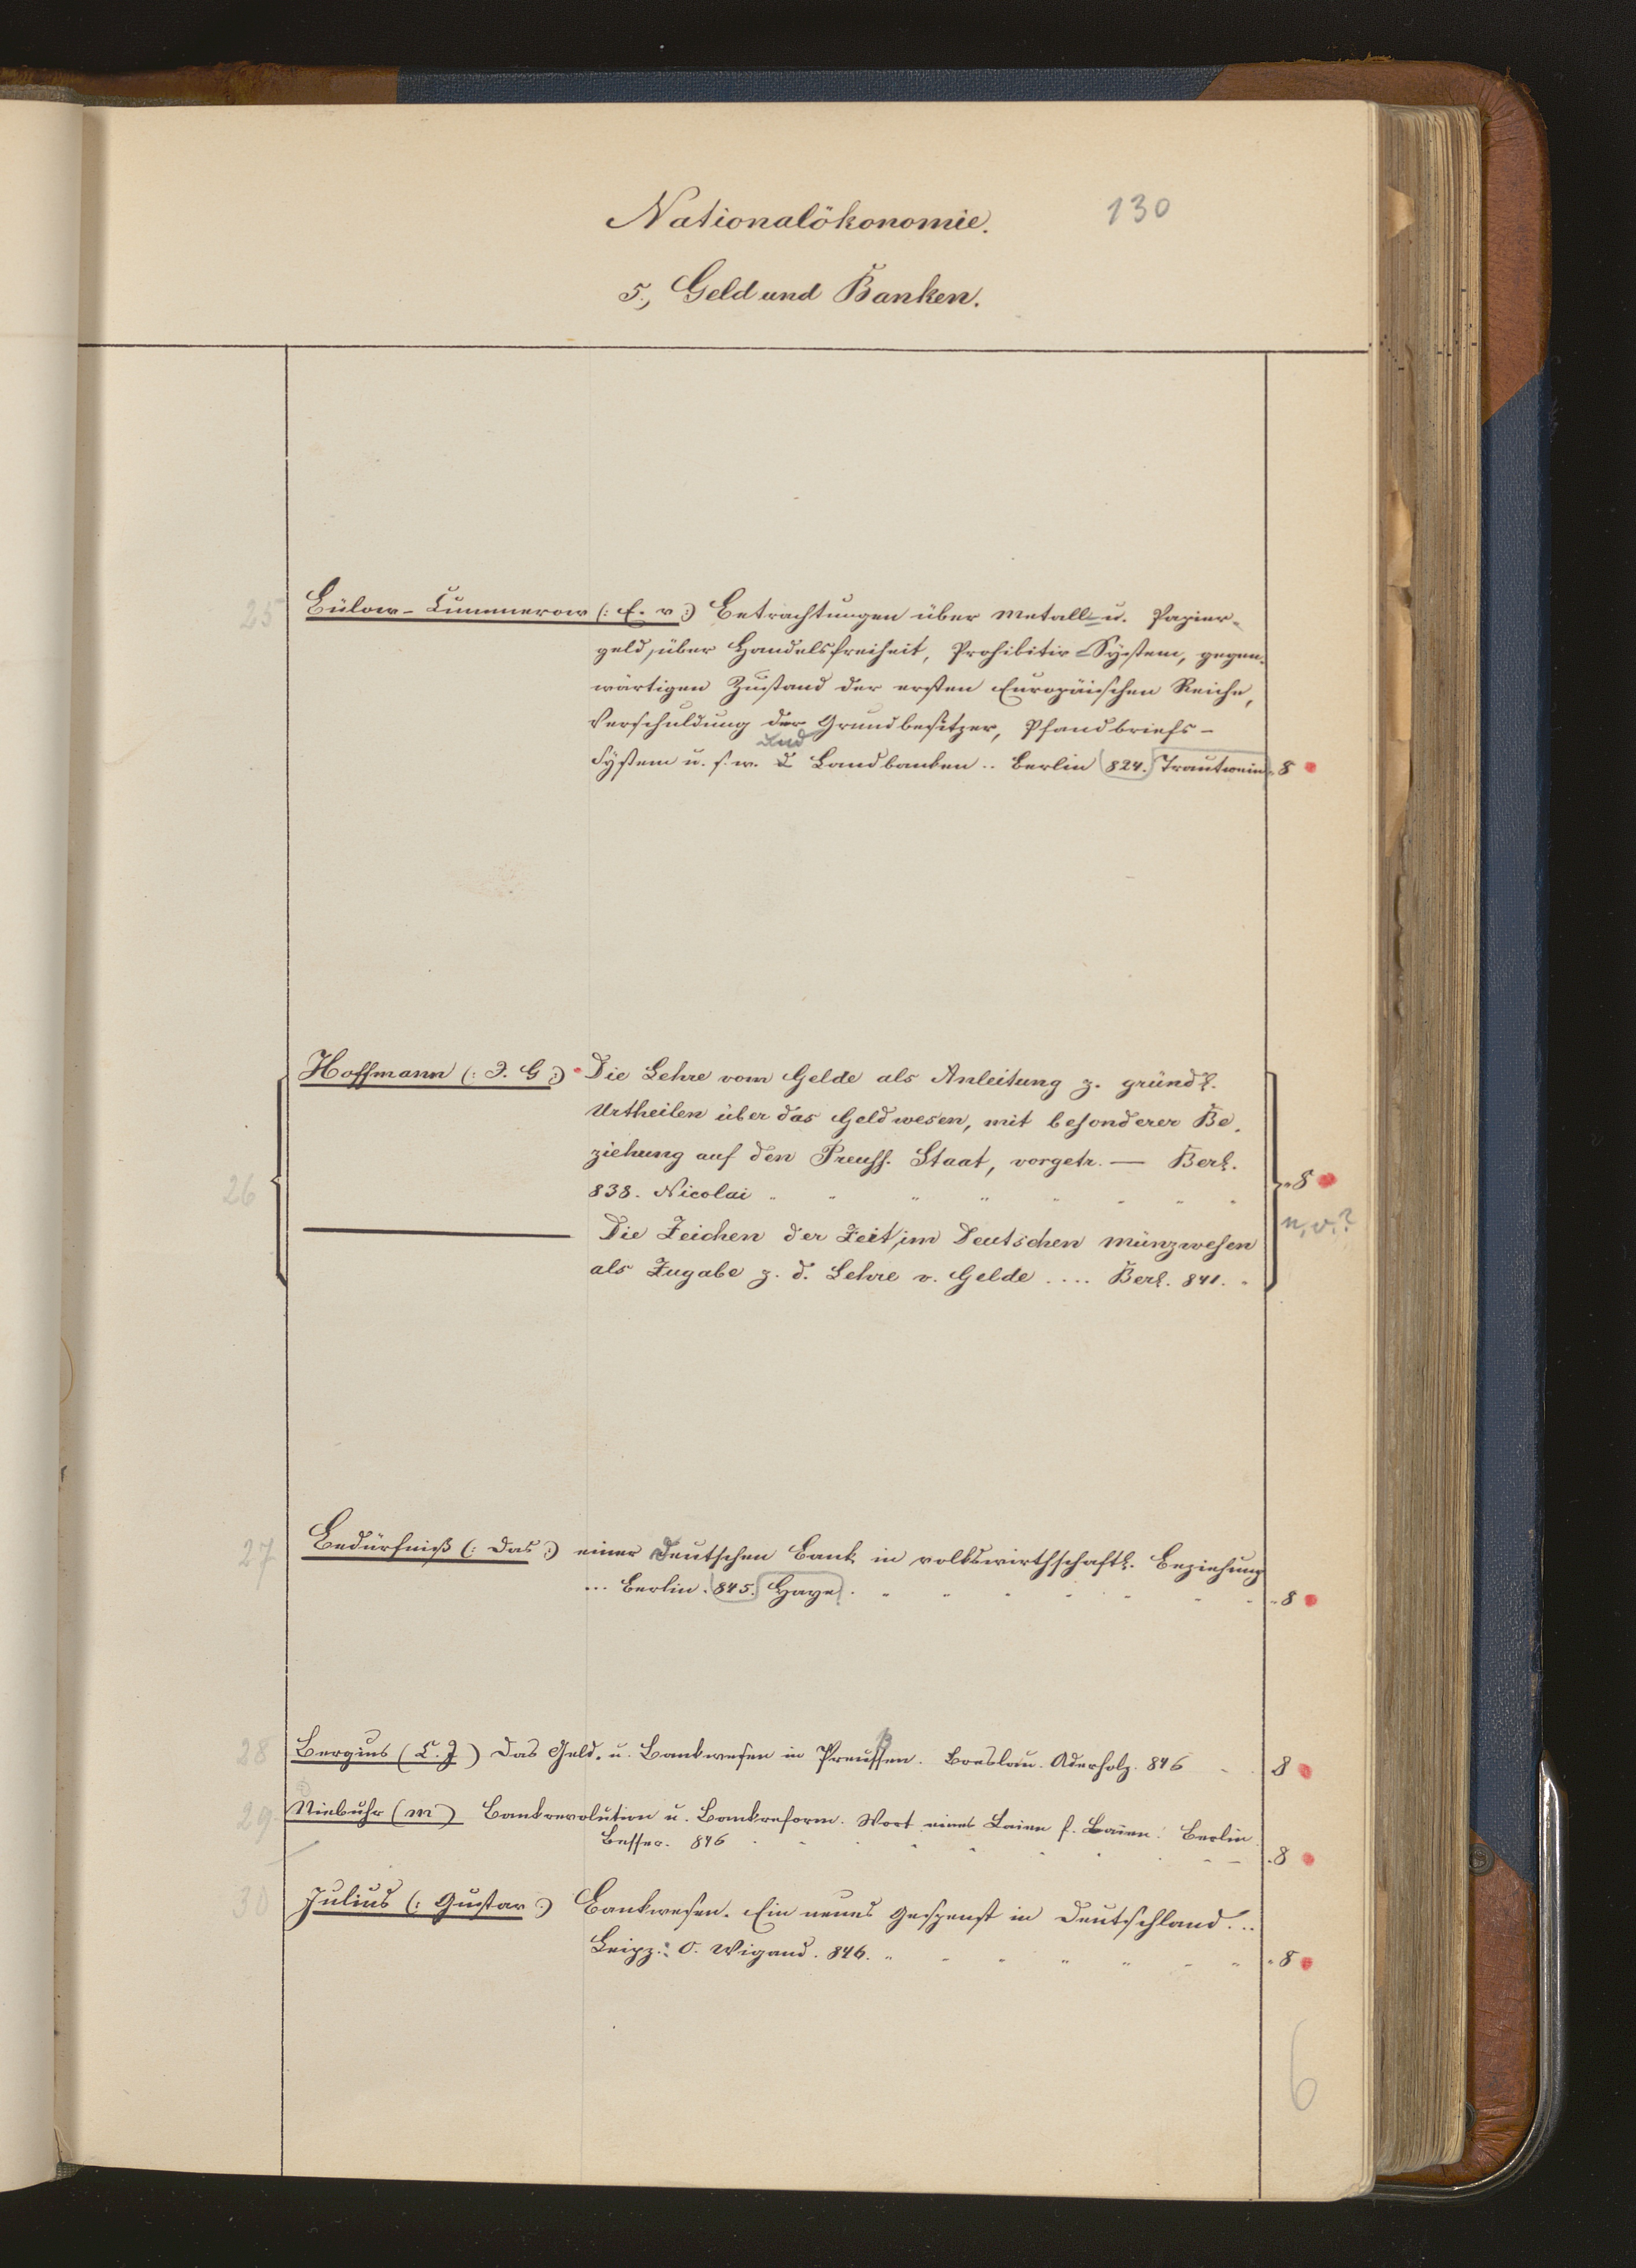 130
Nationalökonomie.
5., Geld und Banken.
25 Bülow-Cummerow (: E. v :) Betrachtungen über Metall- u. Papier-
geld, über Handelsfreiheit, Prohibitiv-System, gegen-
wärtigen Zustand der ersten Europäischen Reiche,
Verschuldung der Grundbesitzer, Pfandbriefs-
und
System u. s. w. Landbanken .. Berlin 824. Trautwein. 8
Hoffmann (: J. G :) Die Lehre vom Gelde als Anleitung z. gründl.
Urtheilen über das Geldwesen, mit besonderer Be-
ziehung auf den Preuss. Staat, vorgetr. — Berl.
26 838. Nicolai " 8
n. v. ?
Die Zeichen der Zeit im Deutschen Münzwesen
als Zugabe z. d. Lehre v. Gelde .... Berl. 841.
27 Bedürfniß (: Das :) einer Deutschen Bank in volkswirthschaftl. Beziehung
... Berlin. 845. Hayn. 8
28 Bergius (C. J) Das Geld- u. Bankwesen in Preußen. Breslau. Aderholz. 846 8
29 Niebuhr (M) Bankrevolution u. Bankreform. Wort eines Laien f. Laien. Berlin.
Besser. 846 8
30 Julius (: Gustav :) Bankwesen. Ein neues Gespenst in Deutschland ...
Leipz.: O. Wigand. 846. " 8
6